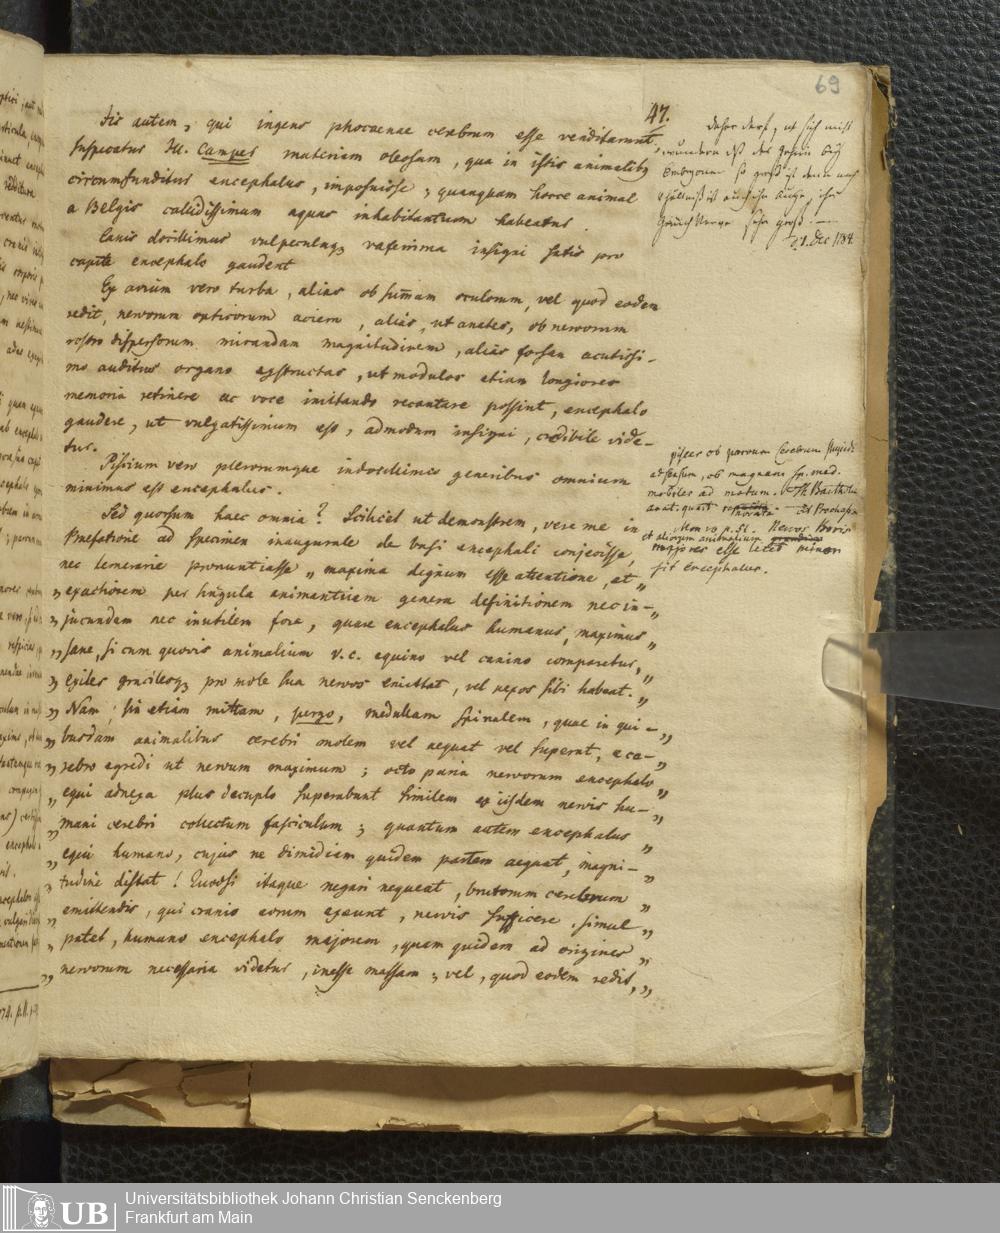 69
47.
His autem, qui ingens phocaenae cerebrum esse venditarunt,
suspicatur Ill. Camper materiam oleosam, qua in istis animalibꝫ
circumfunditur encephalus, imposuisse; quanquam hocce animal
a Belgis callidissimum aquas inhabitantium habeatur.
Canis docillimus vulpeculaqꝫ vaferrima insigni satis pro
capite encephalo gaudent
Ex avium vero turba, alias ob summam oculorum, vel quod eodem
redit, nervorum opticorum aciem, alias, ut anates, ob nervorum
rostro dispersorum mirandam magnitudinem, alias forsan acutissi-
mo auditus organo exstructas, ut modulos etiam longiores
memoria retinere ac voce imitando recantare possint, encephalo
gaudere, ut vulgatissimum est, admodum insigni, credibile vide-
tur.
Piscium vero plerorumque indocillimis generibus omnium
minimus est encephalus.
Sed quorsum haec omnia? Scilicet ut demonstrem, vere me in
Praefatione ad specimen inaugurale de basi encephali conjecisse,
nec temerarie pronuntiasse „maxima dignum esse attentione, et„
„exactiorem per singula animantium genera definitionem nec in-„
„jucundam nec inutilem fore, quare encephalus humanus, maximus„
„sane, si cum quovis animalium v.c. equino vel canino comparetur,„
„exiles gracilesqꝫ pro mole sua nervos emittat, vel nexos sibi habeat.„
„Nam, sin etiam mittam, pergo, medullam spinalem, quae in qui-„
„busdam animalibus cerebri molem vel aequat vel superat, e ce-„
„rebro egredi ut nervum maximum; octo paria nervorum encephalo„
„equi adnexa plus decuplo superabunt similem ex iisdem nervis hu-„
„mani cerebri collectum fasciculum; quantum autem encephalus„
„equi humano, cujus ne dimidiam quidem partem aequat, magni-„
„tudine distat! Quodsi itaque negari nequeat, brutorum cerebrum„
„emittendis, qui cranio eorum exeunt, nervis sufficere, simul„
„patet, humano encephalo majorem, quam quidem ad origines„
„nervorum necessaria videtur, inesse massam; vel, quod eodem redit,„
daher darf, ut sich nicht
wundern daß das Gehirn bey
Embryonen so groß ist denn nach
Verhältniß ist auch ihr Auge, ihr
sehr groß
21. Dec 1784.
pisces ob parvum Cerebrum stupidi
ad sensum, ob magnam sp. med.
mobiles ad motum. Th Bartholin
Prochaska
p. 51. Nervos Bovis
et aliorum animalium
majores esse licet minor
sit encephalus.
Universitätsbibliothek Johann Christian Senckenberg
Frankfurt am Main
UB